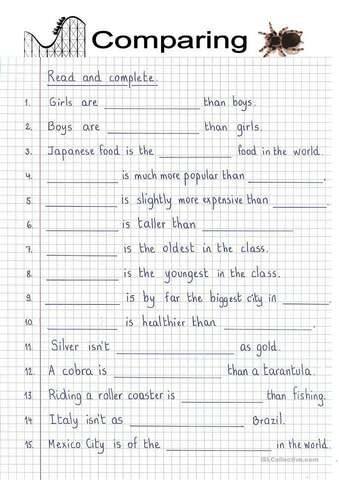 Comparing
Read and complete.
1. Girls are ____________ than boys.
2. Boys are ____________ than girls.
3. Japanese food is the ____________ food in the world.
4. ____________ is much more popular than ____________.
5. ____________ is slightly more expensive than ____________.
6. ____________ is taller than ____________.
7. ____________ is the oldest in the class.
8. ____________ is the youngest in the class.
9. ____________ is by far the biggest city in ____________.
10. ____________ is healthier than ____________.
11. Silver isn't ____________ as gold.
12. A cobra is ____________ than a tarantula.
13. Riding a roller coaster is ____________ than fishing.
14. Italy isn't as ____________ Brazil.
15. Mexico City is of the ____________ in the world.
iSLCollective.com